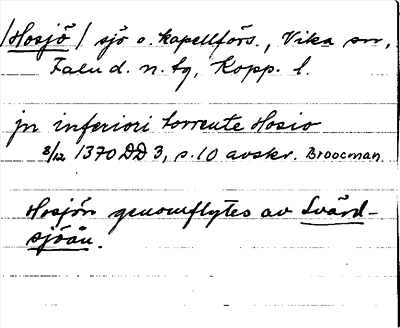 /Hosjö/ sjö o. kapellförs., Vika sn,
Falu d. n. tg, Kopp. l.
jn inferiori torrente Hosio
8/12 1370 DD 3, s. 10 avskr. Broocman
Hosjön genomflytes av Svärd-
sjöån.